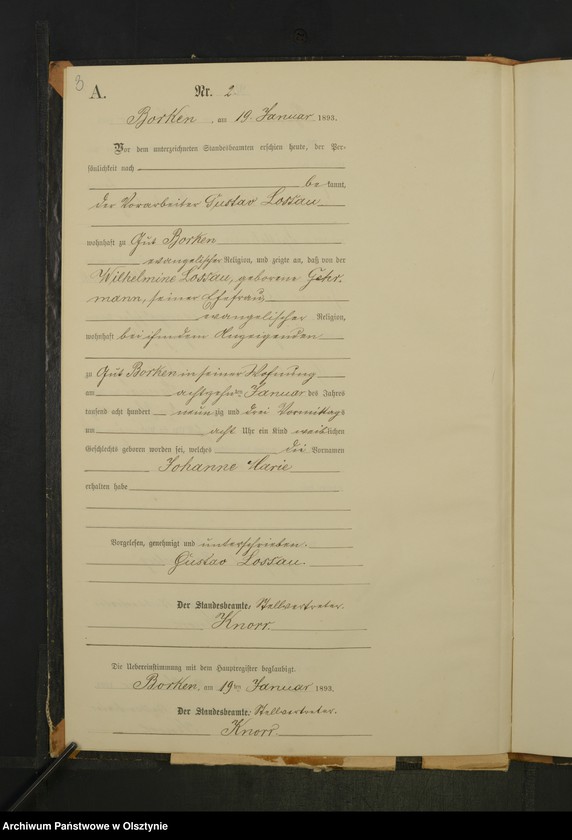 3
A.
Nr. 2.
Borken, am 19 Januar 1893.
Vor dem unterzeichneten Standesbeamten erschien heute, der Per-
sönlichkeit nach
be kannt,
der Vorarbeiter Gustav Lossau
wohnhaft zu Gut Borken
evangelischer Religion, und zeigte an, daß von der
Wilhelmine Lossau, geborene Gehr-
mann, seiner Ehefrau
evangelischer Religion,
wohnhaft bei ihm dem Anzeigenden
zu Gut Borken in seiner Wohnung
am achtzehnten Januar des Jahres
tausend acht hundert neun zig und drei Vormittags
um acht Uhr ein Kind weib lichen
Geschlechts geboren worden sei, welches die Vornamen
Johanne Marie
erhalten habe
Vorgelesen, genehmigt und unterschrieben.
Gustav Lossau.
Der Standesbeamte. Stellvertreter.
Knorr.
Die Uebereinstimmung mit dem Hauptregister beglaubigt.
Borken, am 19ten Januar 1893.
Der Standesbeamte. Stellvertreter.
Knorr
Archiwum Państwowe w Olsztynie